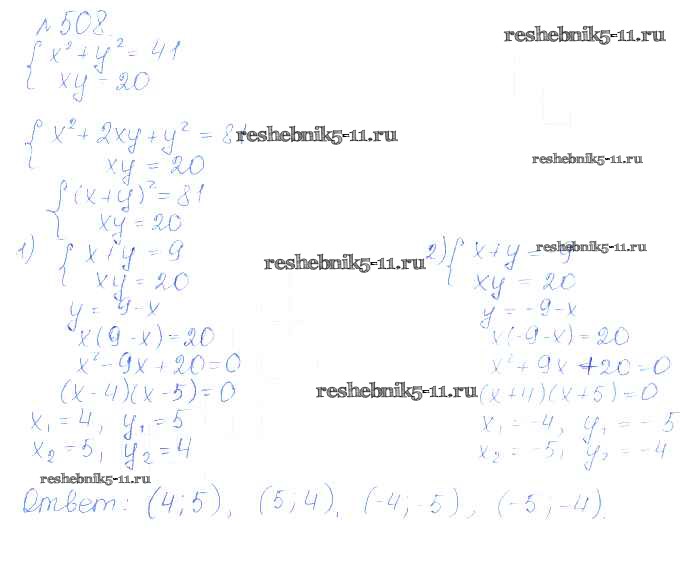 №508.
reshebnik5-11.ru
{ x² + y² = 41
xy = 20
{ x² + 2xy + y² = 81
reshebnik5-11.ru
xy = 20
reshebnik5-11.ru
{ (x+y)² = 81
xy = 20
1) { x + y = 9
xy = 20
reshebnik5-11.ru
y = 9-x
x(9-x)=20
x²-9x+20=0
(x-4)(x-5)=0
x₁=4, y₁=5
x₂=5, y₂=4
2) { x+y = -9
reshebnik5-11.ru
xy = 20
y = -9-x
x(-9-x)=20
x²+9x+20=0
reshebnik5-11.ru
(x+4)(x+5)=0
x₁=-4, y₁=-5
x₂=-5, y₂=-4
reshebnik5-11.ru
Ответ: (4;5), (5;4), (-4;-5), (-5;-4).